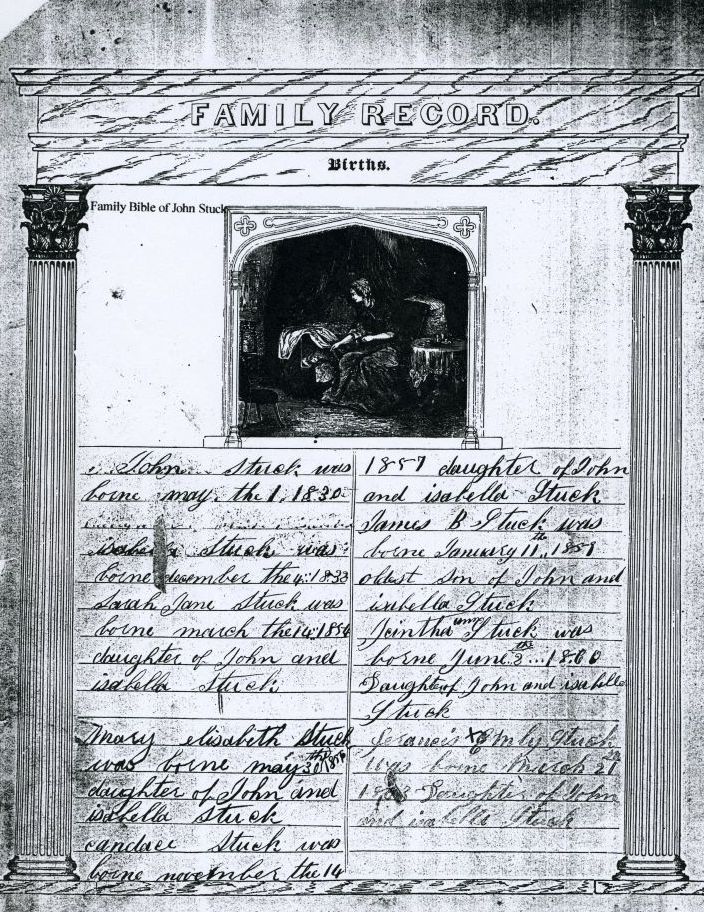 FAMILY RECORD.
Births.
Family Bible of John Stuck
John Stuck was
borne may the 1. 1830
isabella Stuck was
borne december the 4. 1833
Sarah Jane Stuck was
borne march the 14. 
daughter of John and
isabella Stuck
Mary elisabeth Stuck
was borne may 30th
daughter of John and
isabella Stuck
candace Stuck was
borne november the 14
1857 daughter of John
and isabella Stuck
James B Stuck was
borne January 11th,
oldest son of John and
isabella Stuck
Stuck was
borne June 1860
Daughter of John and isabella
Stuck
Stuck
was borne March
Daughter of John
and isabella Stuck